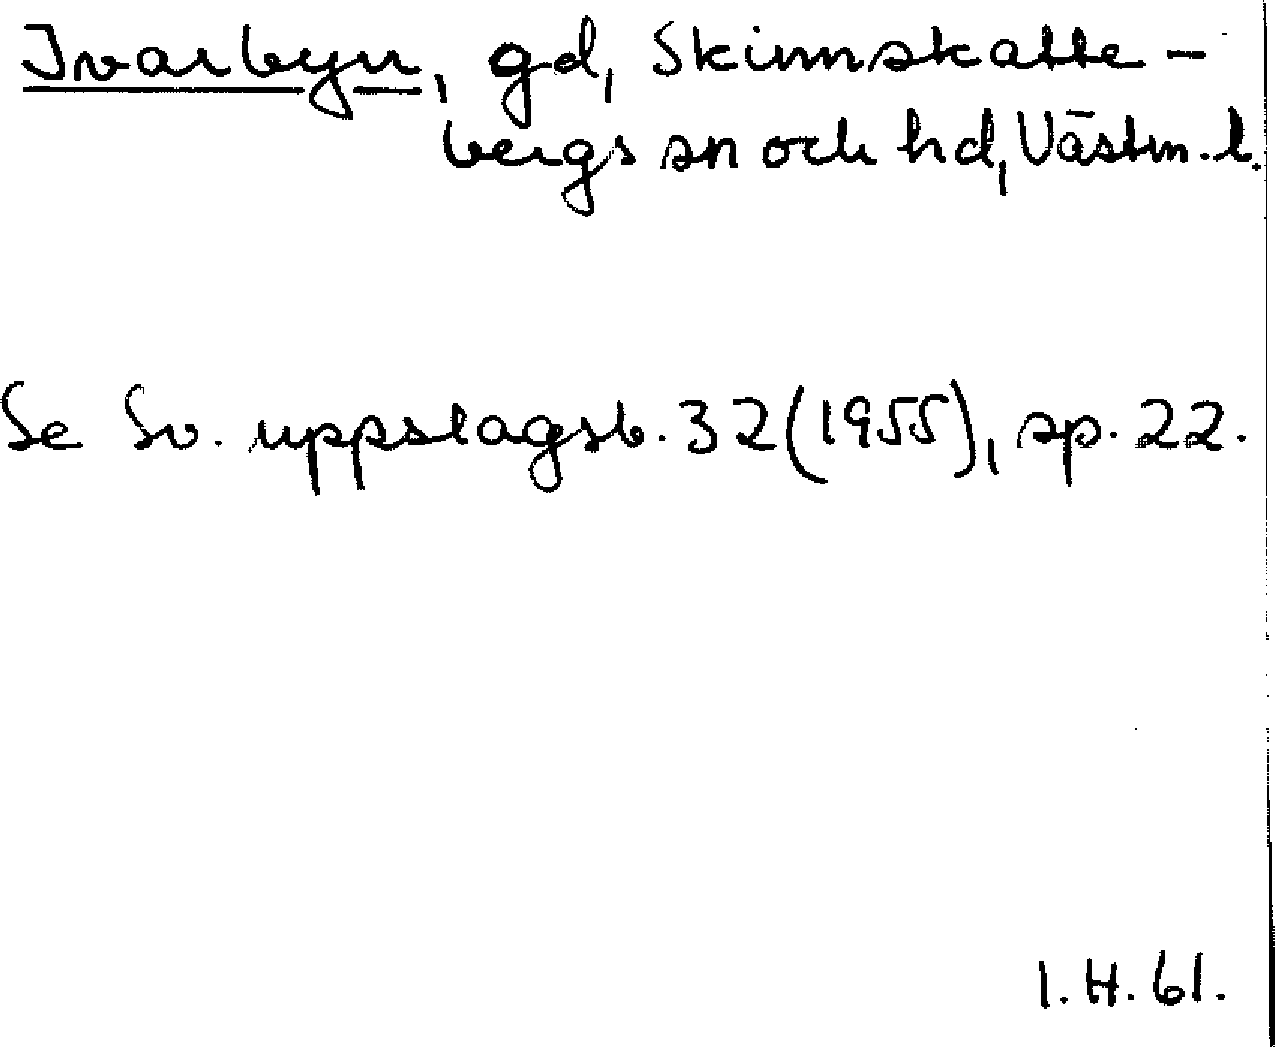 Ivarbyn, gd, Skinnskatte-
bergs sn och hd, Västm. l.
Se Sv. uppslagsb. 32 (1955), sp. 22.
I. H. 61.